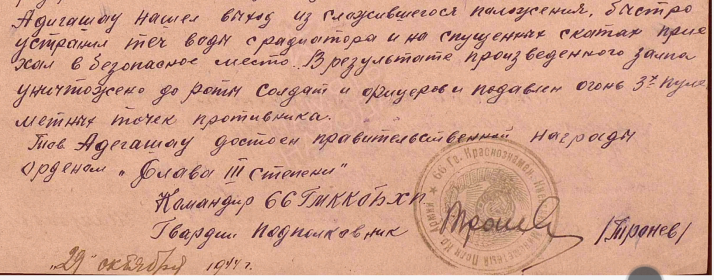 Адегашау нашел выход из сложившегося положения, быстро
устранил теч воды с радиатора и на спущенных скатах прие
хал в безопасное место. В результате произведенного залпа
уничтожено до роты солдат и офицеров и подавлен огонь 3х пуле
метных точек противника.
Тов Адегашау достоен правительственной награды
орденом „Слава III степени"
Командир 66
Гвардии Подполковник
/Тронев/
„29" октября 1944 г.
66 Гв. Краснознамен